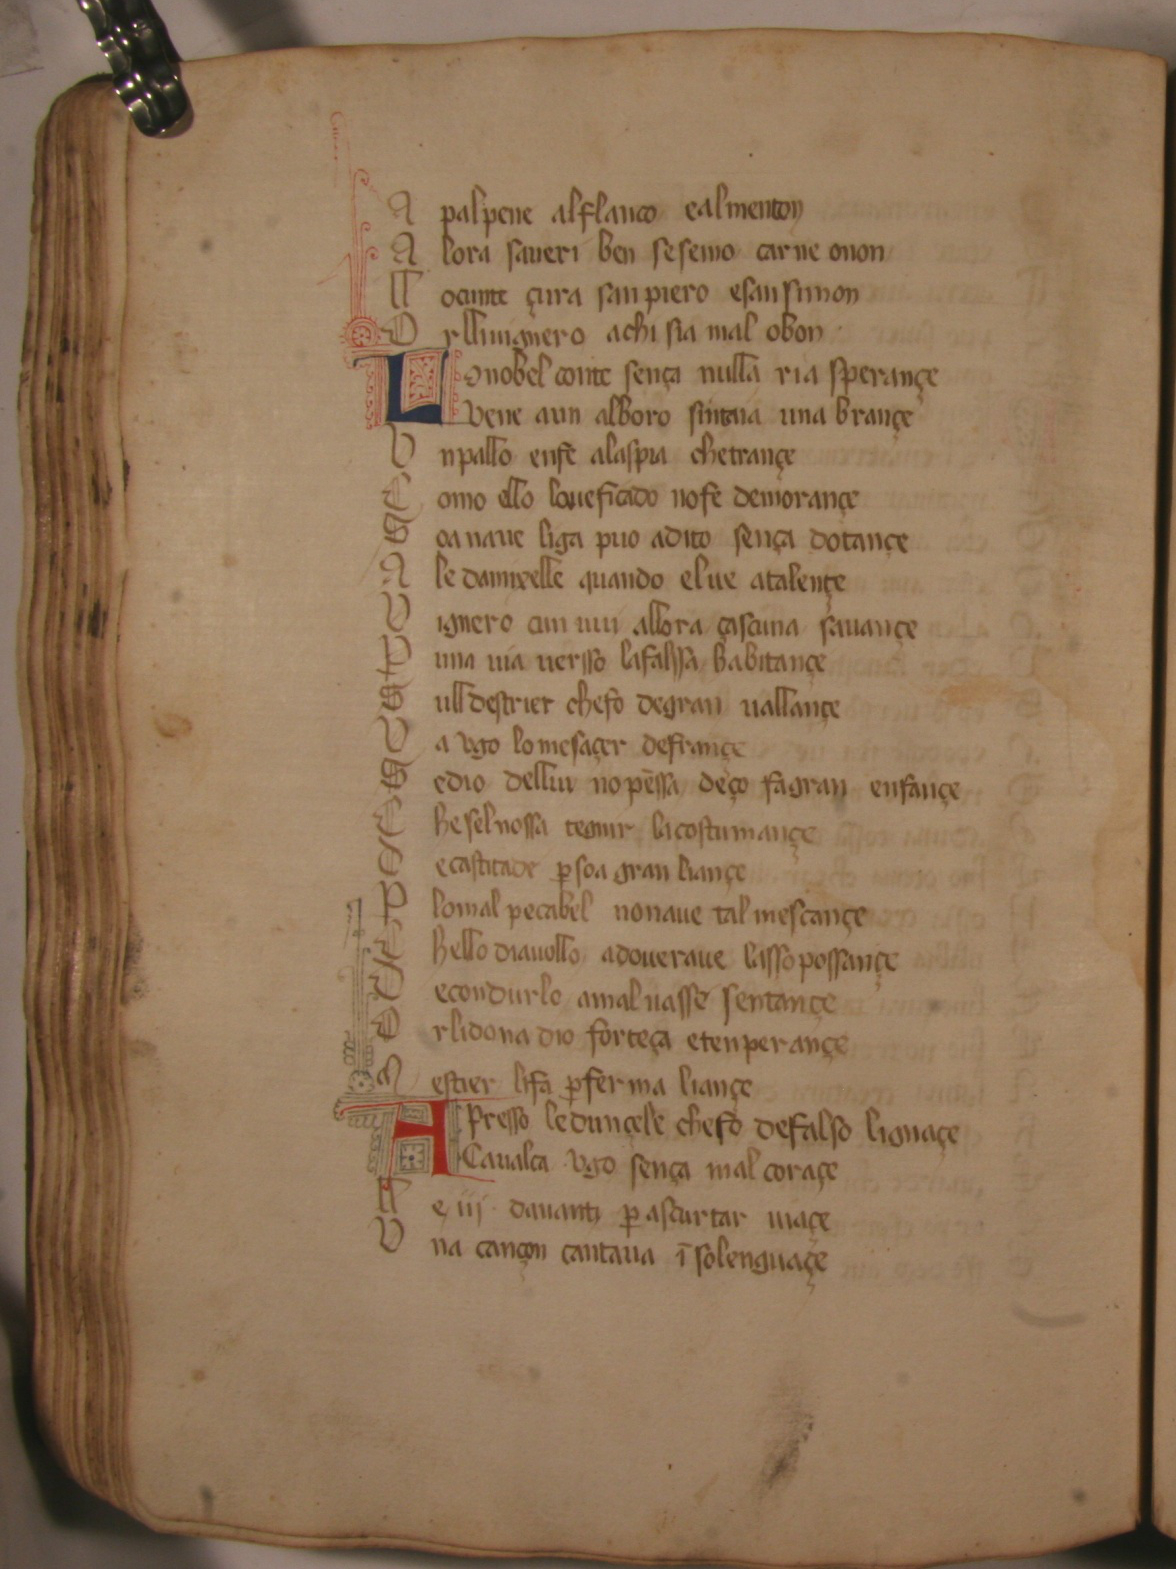 A palpene alflanco ealmenton
A lora saueri ben sesemo carne onon
M ocunte çura sanpiero esansimon
O rlliuignero achi sia mal obon
L onobel conte sença nulla ria sperançe
Vene aun alboro sintaia una brançe
V npallo enfe alaspia chetrançe
C omo ello loueficado nofe demorançe
S oanaue liga puo adito sença dotançe
A le damixelle quando elue atalençe
V ignero cun uui allora çascuna sauançe
P una uia uersso lafalssa habitançe
S ull destrier chefo degran uallançe
V a vgo lomesaçer defrançe
S edio dellui nopēssa deço fagran enfançe
C heselnossa tegnir lacostumançe
S ecastitade ꝑsoa gran liançe
P lomal pecabel nonaue tal mescançe
C hello diauollo adoueraue lassopossançe
D econdurlo amaluasse sentançe
O rlidona dioforteça etenperançe
M estier lifa ꝑferma liançe
A Presso ledunçele chefo defalso lignaçe
Caualca vgo sença mal coraçe
M e iij dauanti ꝑ ascurtar uiaçe
V na cançon cantaua ī solenguaçe